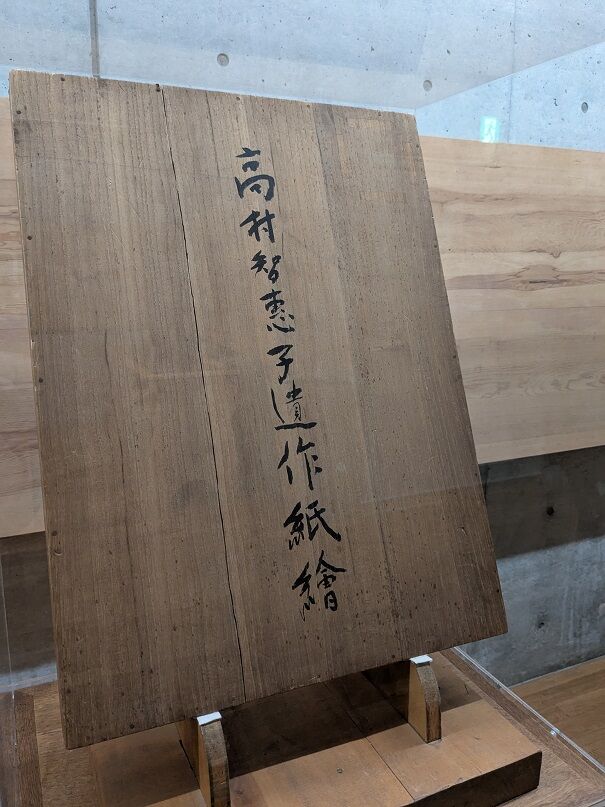 高村智恵子遺作紙繪